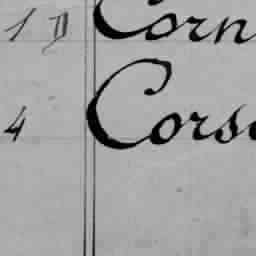 1 D Corn
4 Cors